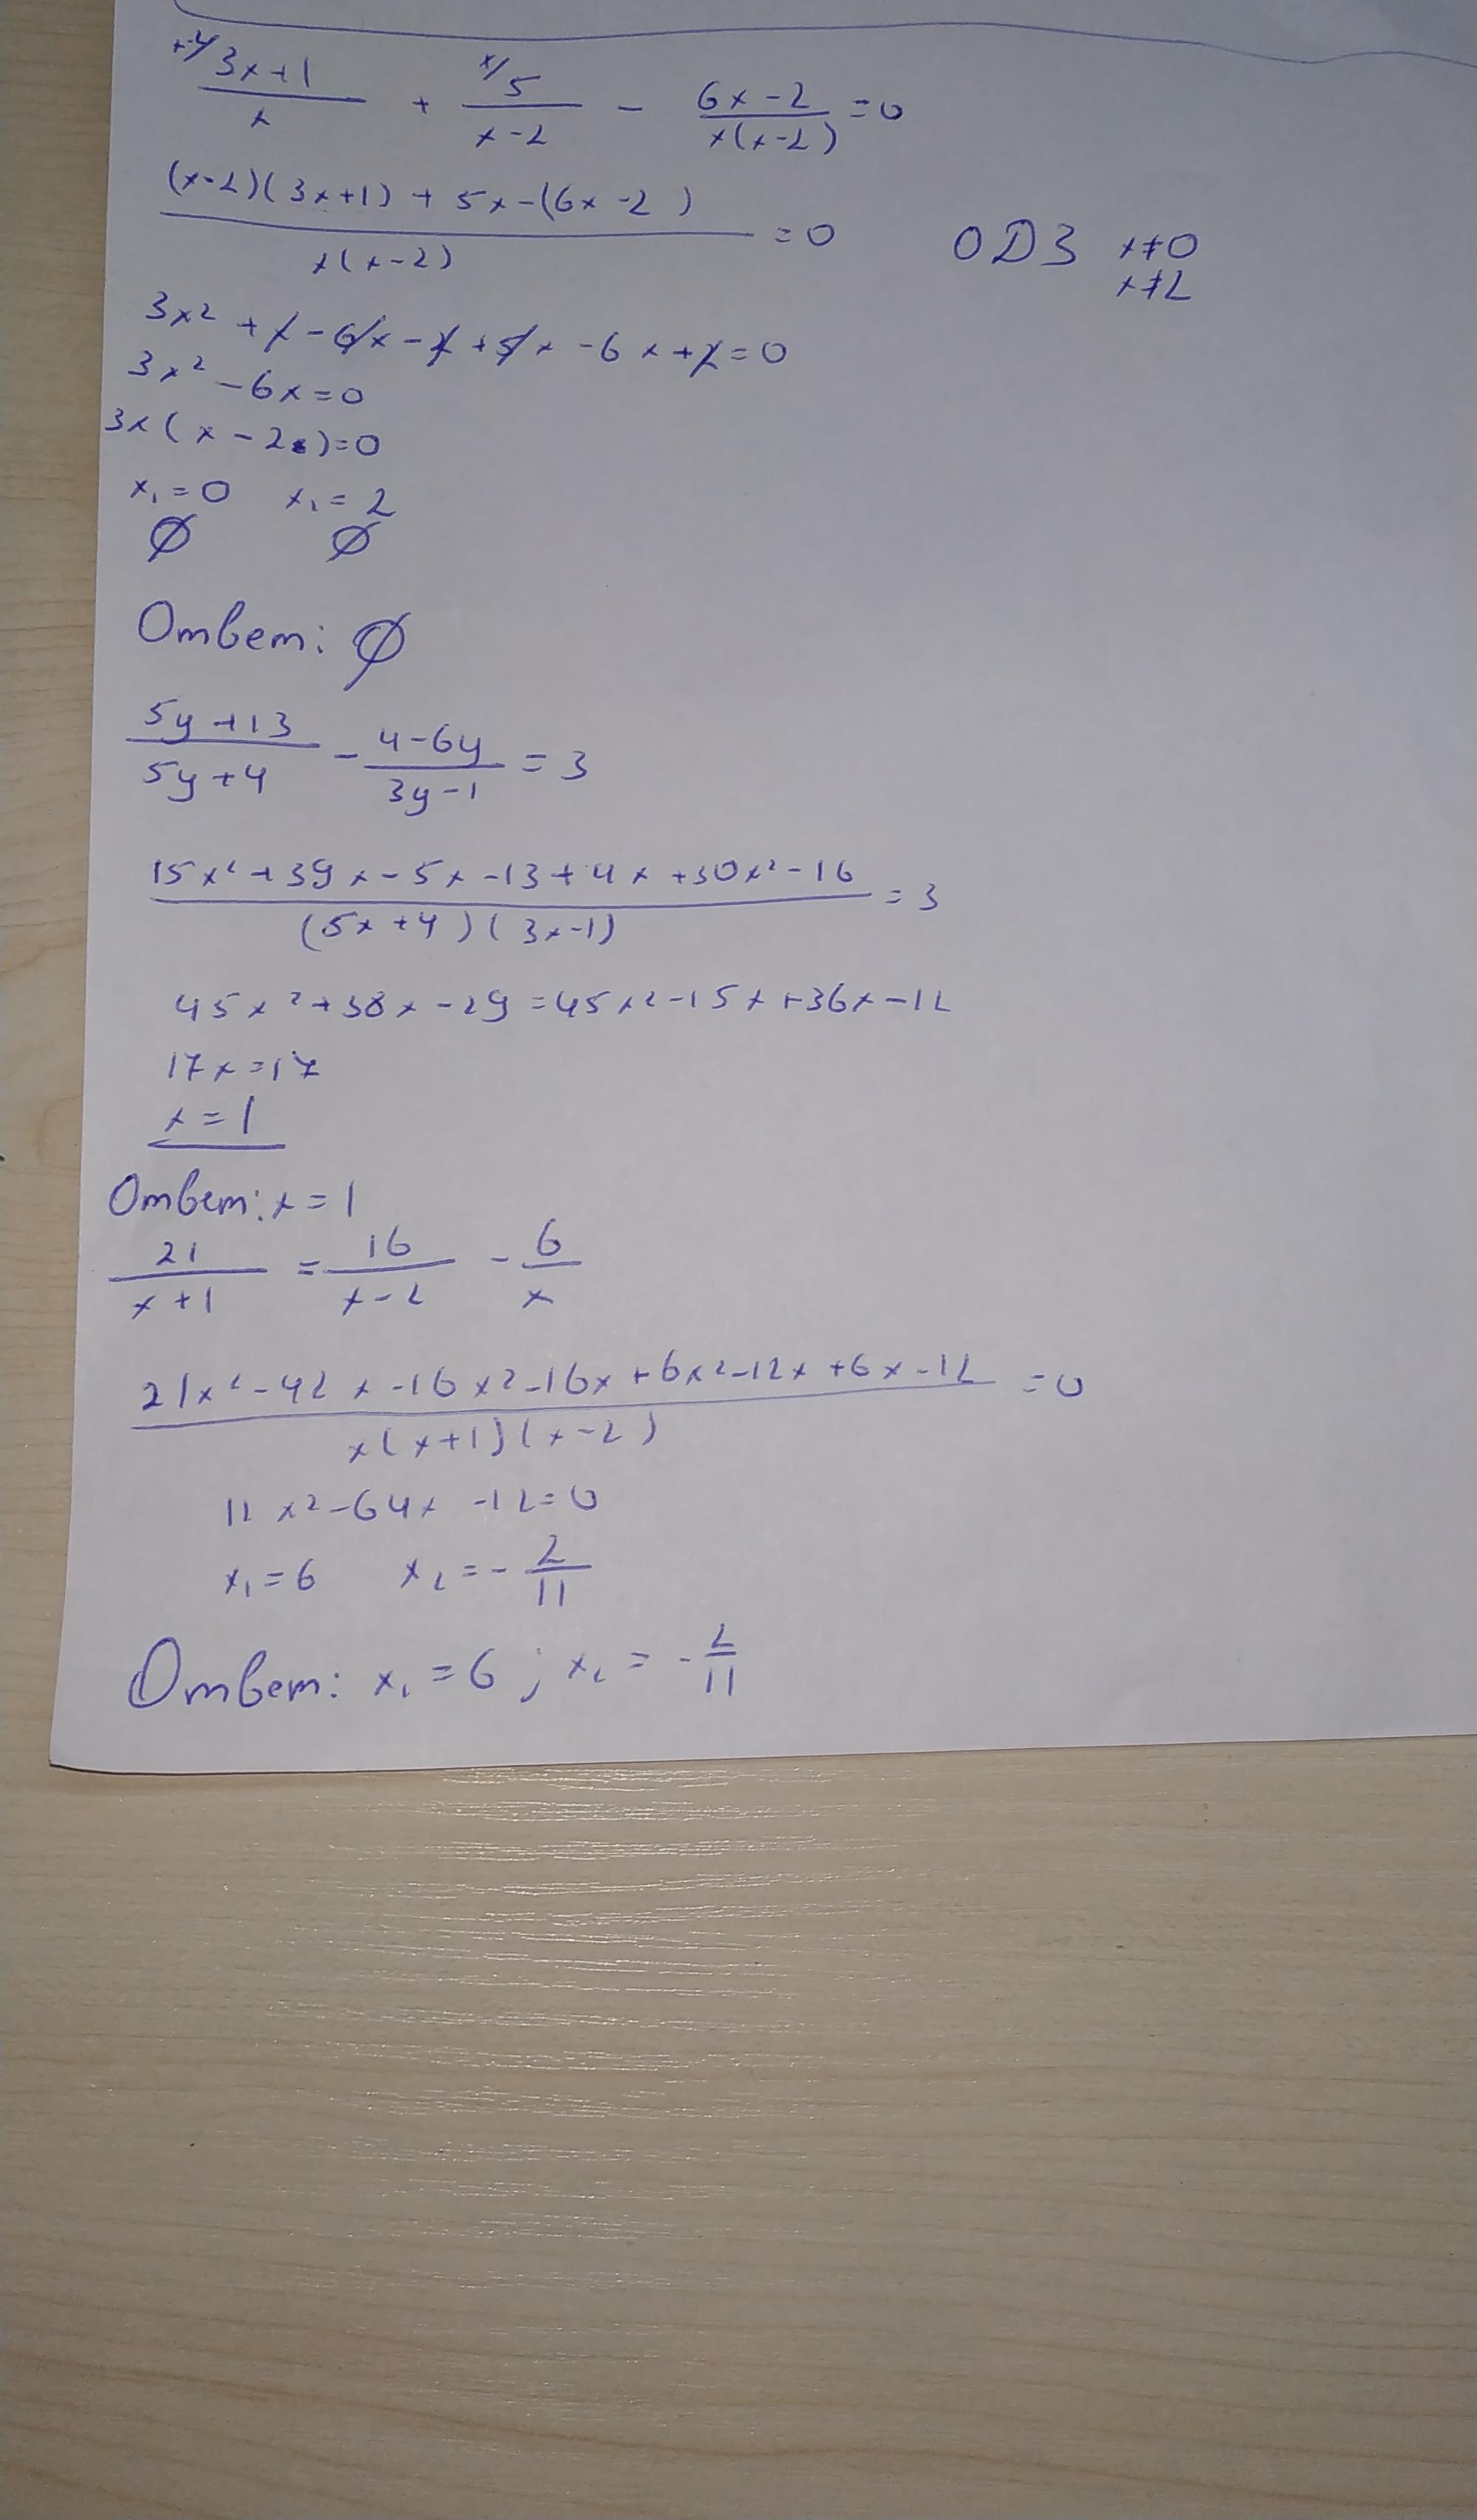 x-2/ 3x+1 / x + x/ 5 / x-2 - 6x-2 / x(x-2) = 0
(x-2)(3x+1) + 5x-(6x-2) / x(x-2) = 0 ОДЗ x≠0
x≠2
3x² + x - 6x - 2 + 5x - 6x + 2 = 0
3x² - 6x = 0
3x(x-2)=0
x₁=0 x₂=2
∅ ∅
Ответ: ∅
5y+13 / 5y+4 - 4-6y / 3y-1 = 3
15x²+39x-5x-13+4x+30x²-16 / (5x+4)(3x-1) = 3
45x²+38x-29=45x²-15x+36x-12
17x=17
x=1
Ответ: x=1
21 / x+1 = 16 / x-2 - 6 / x
21x²-42x-16x²-16x+6x²-12x+6x-12 / x(x+1)(x-2) = 0
11x²-64x-12=0
x₁=6 x₂=-2/11
Ответ: x₁=6; x₂=-2/11